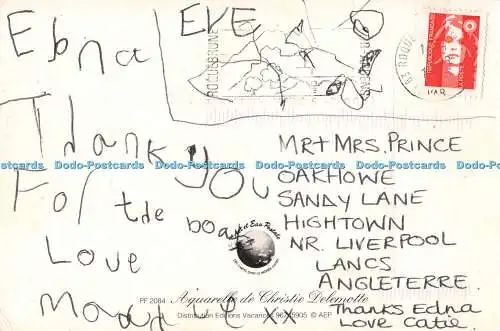 Edna
EVE
Thank you
For the boat
Love
MR + MRS. PRINCE
OAKHOWE
SANDY LANE
HIGHTOWN
NR. LIVERPOOL
LANCS
ANGLETERRE.
Thanks Edna
Love Catie
PF 2084 Aquarelle de Christine Delemotte
Distribution Editions Vacances
© AEP
ROQUEBRUNE
83 ROQUE
VAR
Dodo-Postcards Dodo-Postcards Dodo-Postcards Dodo-Postcards Dodo-Postcards